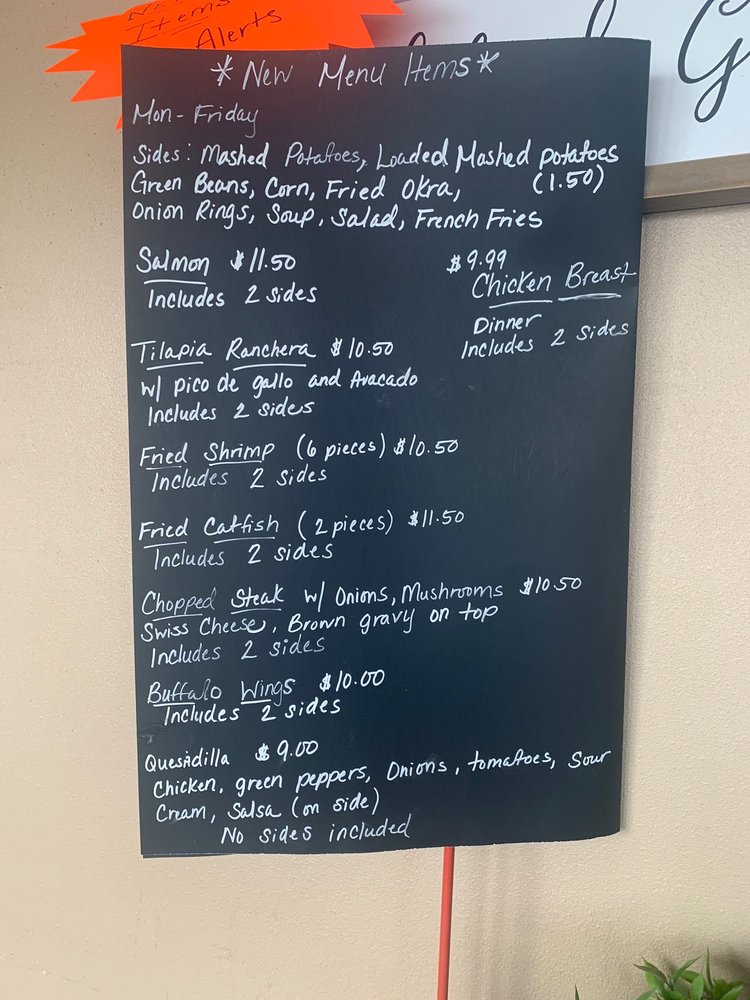 Items
Alerts
*New Menu Items*
Mon-Friday
Sides: Mashed Potatoes, Loaded Mashed potatoes
Green Beans, Corn, Fried Okra, (1.50)
Onion Rings, Soup, Salad, French Fries
Salmon $11.50
Includes 2 sides
$9.99
Chicken Breast
Dinner
Includes 2 sides
Tilapia Ranchera $10.50
w/ pico de gallo and Avacado
Includes 2 sides
Fried Shrimp (6 pieces) $10.50
Includes 2 sides
Fried Catfish (2 pieces) $11.50
Includes 2 sides
Chopped Steak w/ Onions, Mushrooms $10.50
Swiss Cheese, Brown gravy on top
Includes 2 sides
Buffalo Wings $10.00
Includes 2 sides
Quesadilla $9.00
Chicken, green peppers, Onions, tomatoes, Sour
Cream, Salsa (on side)
No sides included